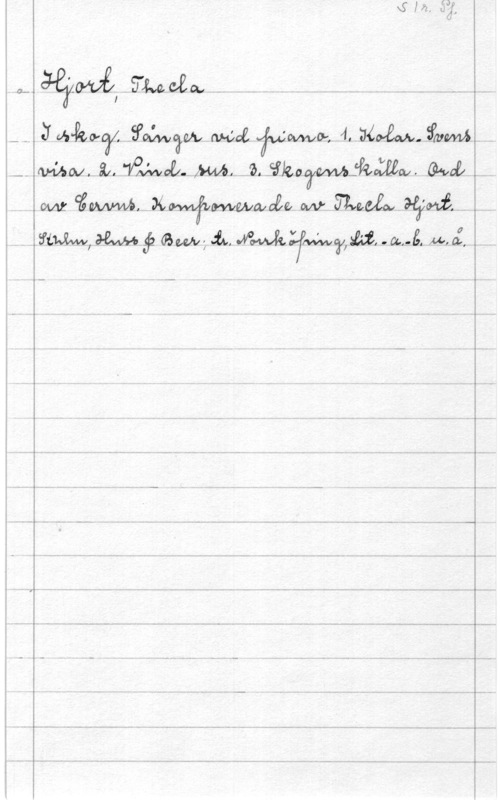 S 1 r. Pf.
Hjort, Thecla
I skog. Sånger vid piano. 1. Kolar-Svens
visa. 2. Vind-sus. 3. Skogens källa. Ord
av Cervus. Komponerade av Thecla Hjort.
Sthlm, Huss & Beer; tr. Norrköping, Lit.-a.-b. u.å.